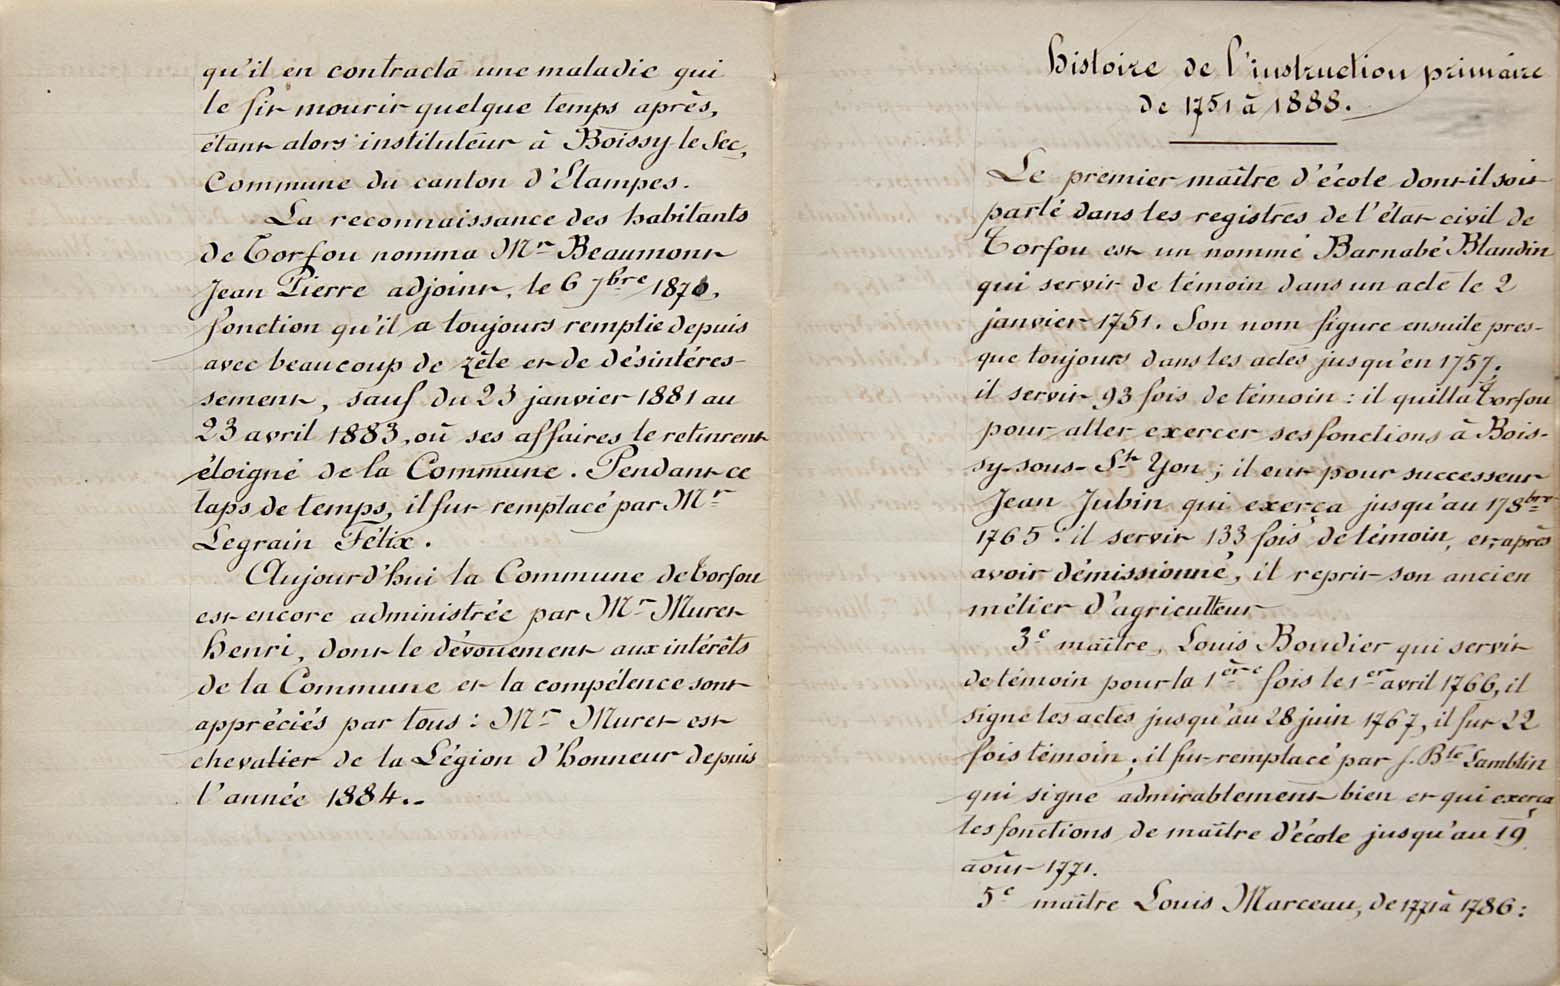 qu'il en contracta une maladie qui
le fit mourir quelque temps après,
étant alors instituteur à Boissy-le-Sec,
Commune du canton d'Etampes.
La reconnaissance des habitants
de Torfou nomma Mr Beaumont
Jean Pierre adjoint, le 6 7bre 1870,
fonction qu'il a toujours remplie depuis
avec beaucoup de zèle et de désintéres-
sement, sauf du 23 janvier 1881 au
23 avril 1883, où ses affaires le retinrent
éloigné de la Commune. Pendant ce
laps de temps, il fut remplacé par Mr
Legrain Félix.
Aujourd'hui la Commune de Torfou
est encore administrée par Mr Muret
Henri, dont le dévouement aux intérêts
de la Commune et la compétence sont
appréciés par tous : Mr Muret est
chevalier de la Légion d'honneur depuis
l'année 1884.-
Histoire de l'instruction primaire
de 1751 à 1888.
Le premier maître d'école dont il soit
parlé dans les registres de l'état civil de
Torfou est un nommé Barnabé Blandin
qui servit de témoin dans un acte le 2
janvier 1751. Son nom figure ensuite pres-
que toujours dans les actes jusqu'en 1757;
il servit 93 fois de témoin : il quitta Torfou
pour aller exercer ses fonctions à Bois-
sy-sous-St Yon ; il eut pour successeur
Jean Jubin qui exerça jusqu'au 17 8bre
1765 : il servit 133 fois de témoin, et, après
avoir démissionné, il reprit son ancien
métier d'agriculteur
3e maître, Louis Boudier qui servit
de témoin pour la 1ère fois le 1er avril 1766, il
signe les actes jusqu'au 28 juin 1767, il fut 22
fois témoin ; il fut remplacé par J. Bte Lamblin
qui signe admirablement bien et qui exerça
les fonctions de maître d'école jusqu'au 19
août 1771.
5e maître Louis Marceau, de 1771 à 1786 :